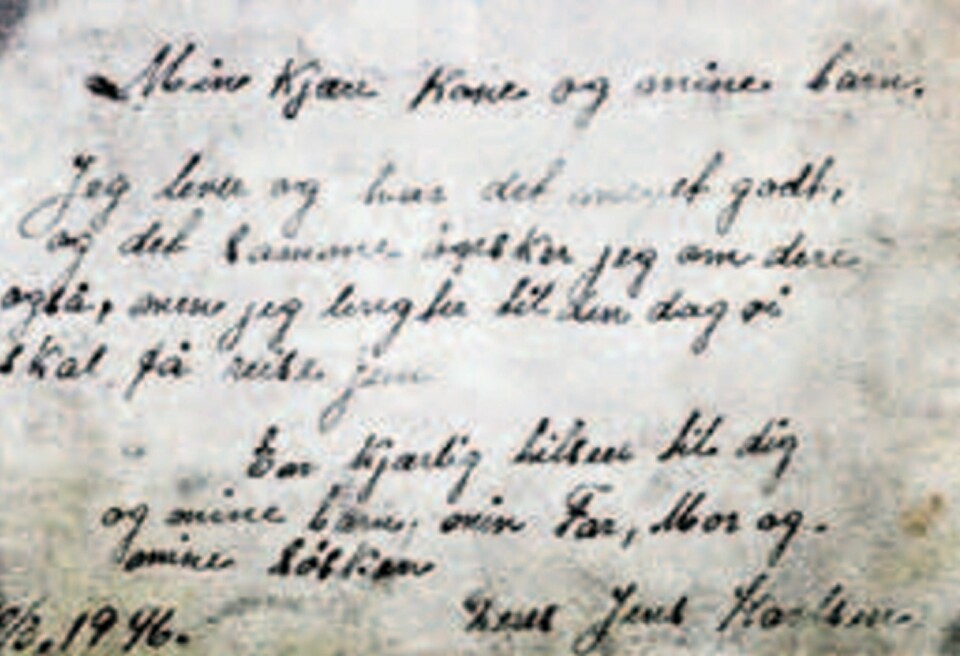 Min Kjære Kone og mine barn.
Jeg lever og har det meget godt,
og det samme ønsker jeg om dere
også, men jeg lengter til den dag vi
skal få reise jem
En kjærlig hilsen til dig
og mine barn, min Far, Mor og
mine søsken
1946. Deres Jens Karlsen.